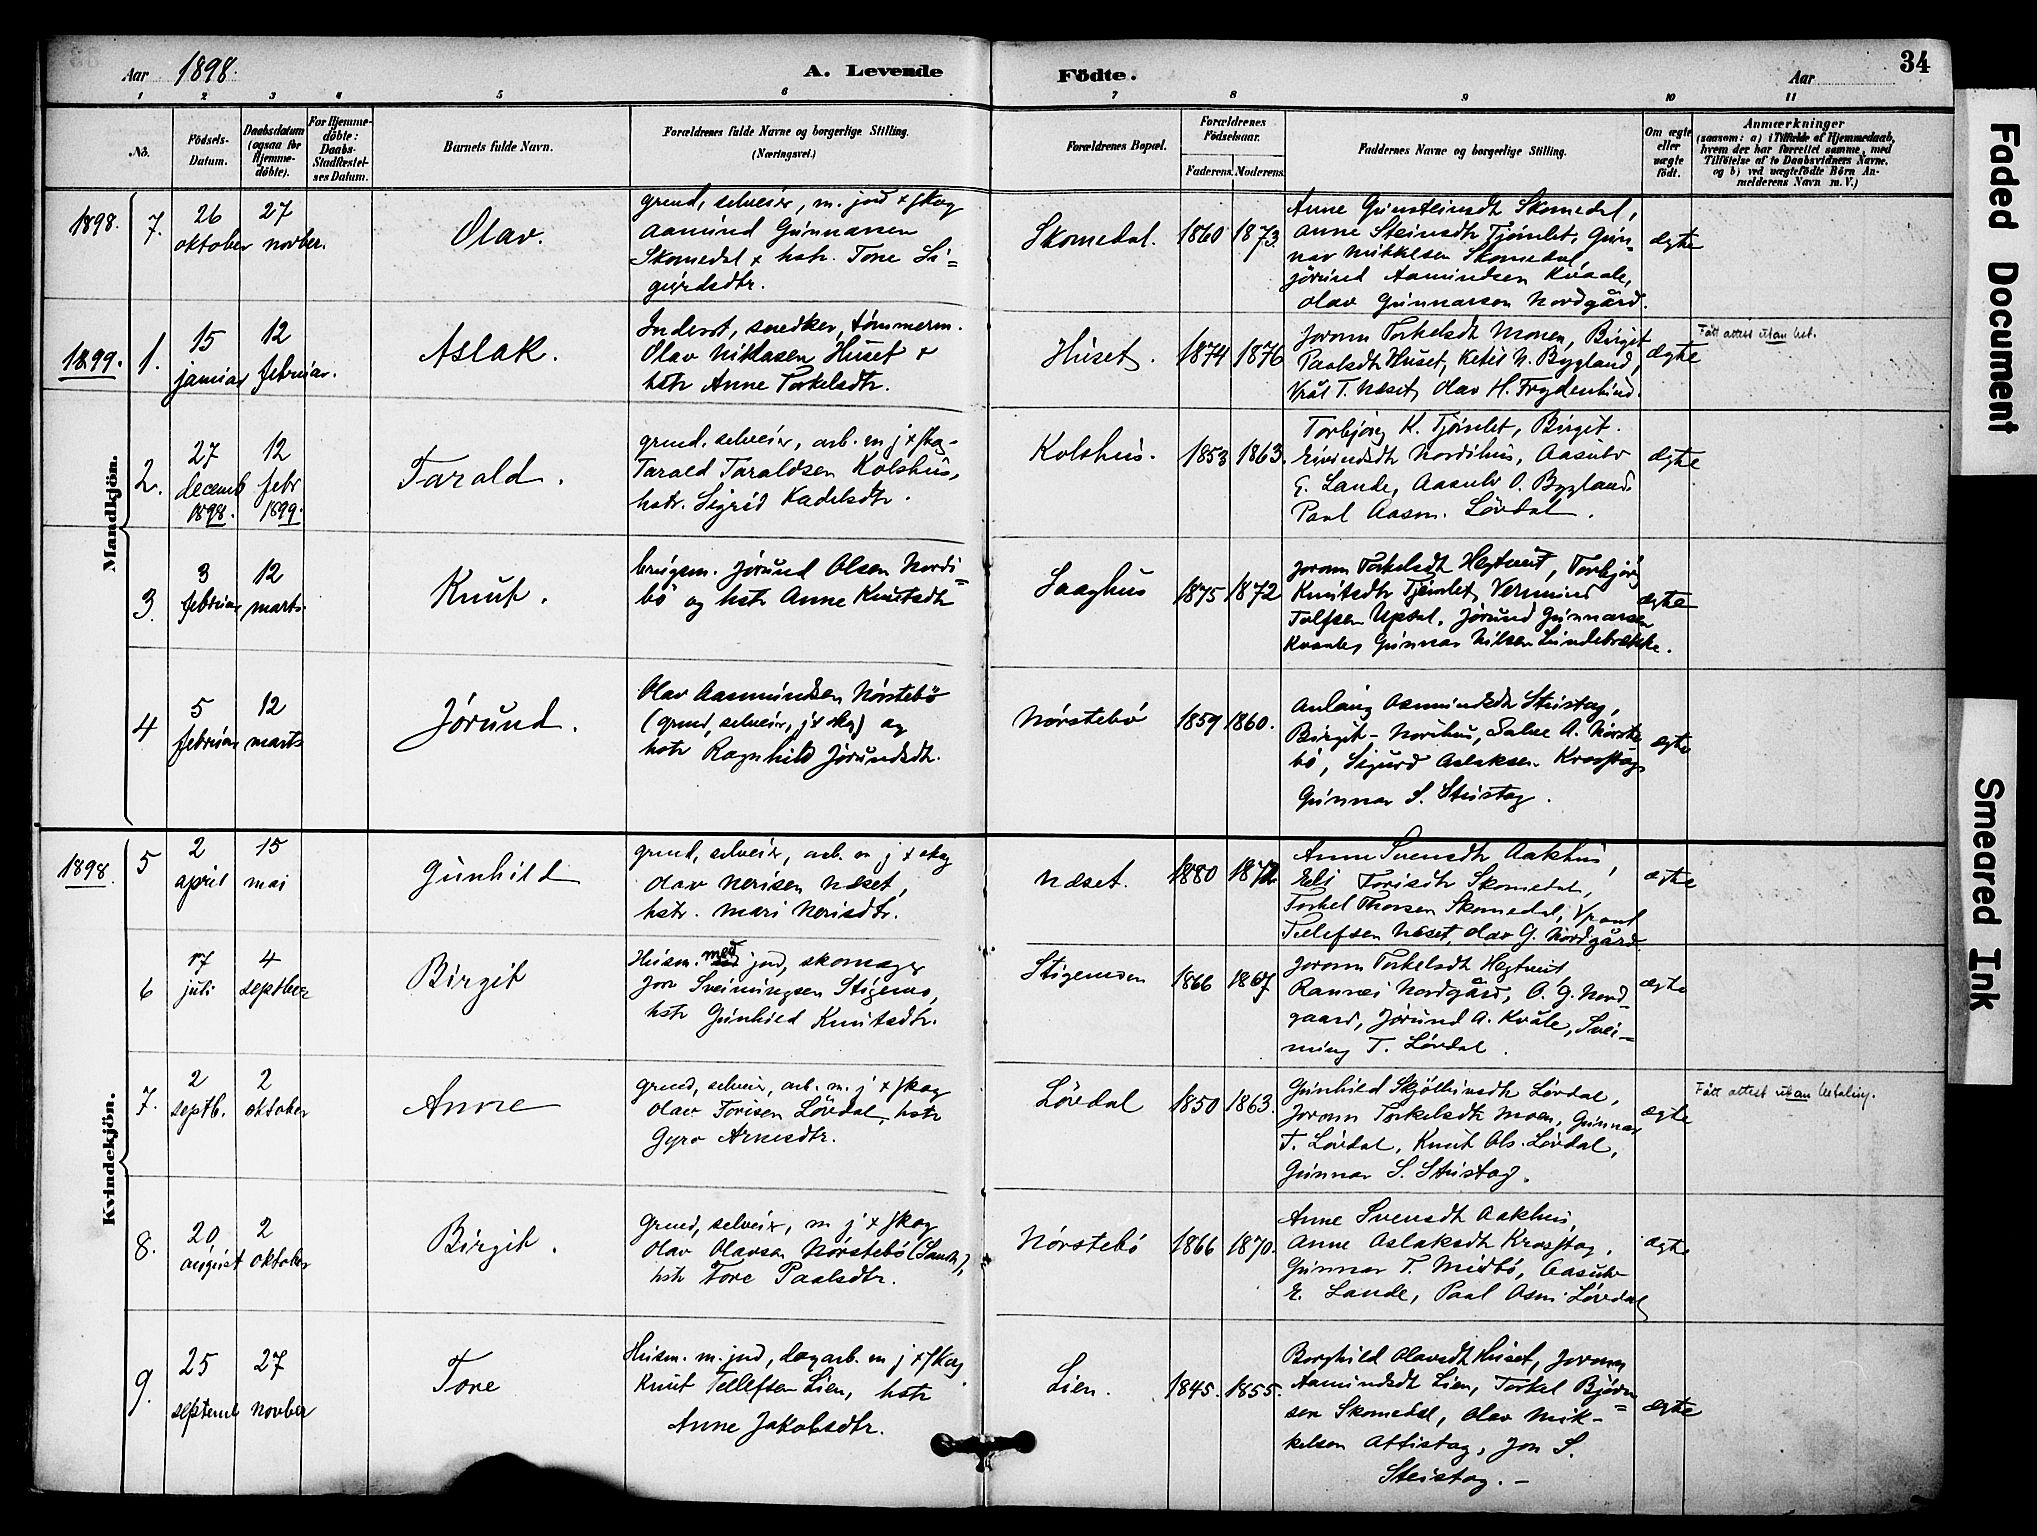 Aar 1898. A. Levende Födte. Aar 34
1 2 3 4 5 6 7 8 9 10 11
No.
Födsels-Datum.
Daabsdatum (ogsaa for Hjemme-döbte).
For Hjemme-döbte: Daabs-Stadfæstel-ses Datum.
Barnets fulde Navn.
Forældrenes fulde Navne og borgerlige Stilling.
(Næringsvei.)
Forældrenes Bopæl.
Forældrenes Födselsaar.
Faderens. Moderens.
Faddernes Navne og borgerlige Stilling.
Om ægte eller uægte födt.
Anmærkninger
(saasom: a) i Tilfælde af Hjemmedaab,
hvem der har forrettet samme, med
Tilföielse af to Daabsvidners Navne.
og b) ved uægtefödte Börn An-
melderens Navn m. V.)
Mandkjön.
1898. 7. 26 oktober 27 novber. Olav.
grund, selveier, m. jord & skog
Aamund Gunnarsen
Skomedal & hstr. Tone Si=
gurdsdtr.
Skomedal. 1860 1873.
Anne Gunsteinsdt Skomedal,
Anne Steinsdtr Tjomlet, Gun-
nar Mikkelsen Skomedal,
Jørund Aamundsen Kvaale,
Olav Gunnarson Nordgård.
ægte
1899. 1. 15 januar 12 februar. Aslak.
Inderst, snedker, tømmerm.
Olav Niklasen Huset &
hstr Anne Torkelsdtr.
Huset. 1874 1876
Joronn Torkelsdt Monen, Birgit
Paalsdt Huset, Ketil N. Bygland,
Vrål T. Næset, Olav H. Frydenlund.
ægte
Fått attest utan bet.
2. 27 decemb 1898. 12 febr 1899. Tarald.
grund. selveier, arb. m j & skog-
Tarald Taraldsen Kolshus,
hstr. Sigrid Kadelsdtr.
Kolshus. 1853 1863.
Torbjørg K. Tjomlet, Birgit
Eivindsdt Nordihus, Aasulv
E. Lande, Aasulv O. Bygland,
Paal Aasm. Lövdal.
ægte
3. 3 februar 12 marts Knut.
brugsm. Jørund Olsen Nordi=
bö og hstr Anne Knutsdtr
Saaghus 1875 1872
Joronn Torkelsdt Hegtveit, Torbjørg
Knutsdtr Tjomlet, Vermund
Tolfsen Upsal, Jørund Gunnarsen
Kvaale, Gunnar Nilsen Lindebrække.
ægte
4 5 februar 12 marts Jørund.
Olav Aasmundsen Nørstebö
(grund, selveier, j & skg) og
hstr Ragnhild Jørundsdtr.
Nørstebö 1859 1860.
Anlaug Osmundsdtr Steistog,
Birgit - Norihus, Salve A. Nørste
bö, Sigurd Aslaksen Krosstøg
Gunnar S. Steistog.
ægte
Kvindekjön.
1898. 5 2 april 15 mai Gunhild
grund, selveier, arb. m j & skog
Olav Nerisen Næset,
hstr. Mari Nerisdtr.
Næset. 1880 1872
Anne Svensdtr Aakhus,
Eli Torisdtr Skomedal,
Torkel Thorsen Skomedal, Vraal
Tellefsen Næset, Olav G. Nordgård
ægte
6 17 juli 4 septber Birgit
Husm. med jord, skomager
Jon Sveinungsen Stigemo,
hstr Gunhild Knutsdtr.
Stigemoen 1866 1867
Joronn Torkelsdtr Hegtveit
Rannei Nordgård, O. G. Nord-
gaard, Jørund A. Kvåle, Svei-
nung T. Lövdal.
ægte
7. 2 septb. 2 oktober Anne
grund, selveier, arb. m. j & skog
Olav Torisen Lövdal, hstr
Gyro Arnesdtr.
Lövdal 1850 1863.
Gunhild Skjølleivsdt Lövdal,
Joronn Torkelsdtr Moen, Gunnar
T. Lövdal, Knut Ols. Lövdal,
Gunnar S. Steistog.
ægte
Fått attest utan betaling.
8. 20 august 2 oktober Birgit.
Grund, selveier, m j & skog
Olav Olavson Nørstebö (Sandn),
hstr Tore Paalsdtr.
Nørstebö 1866 1870.
Anne Svensdt Aakhus,
Anne Aslaksdt Krosstog,
Gunnar T. Midbö, Aasulv
E. Lande, Paal Osm. Lövdal
ægte
9. 25 septemb 27 novber Tore
Husm. m. jord, dagarb. m j & skog.
Knut Tellefsen Lien, hstr
Anne Jakobsdtr.
Lien. 1845. 1855.
Borghild Olavsdt Huset, Joronn
Aamundsdt Lien, Torkel Bjørn=
sen Skomedal, Olav Mik-
kelson Attistog, Jon S.
Steistog. -
ægte
Faded Document
Smeared Ink